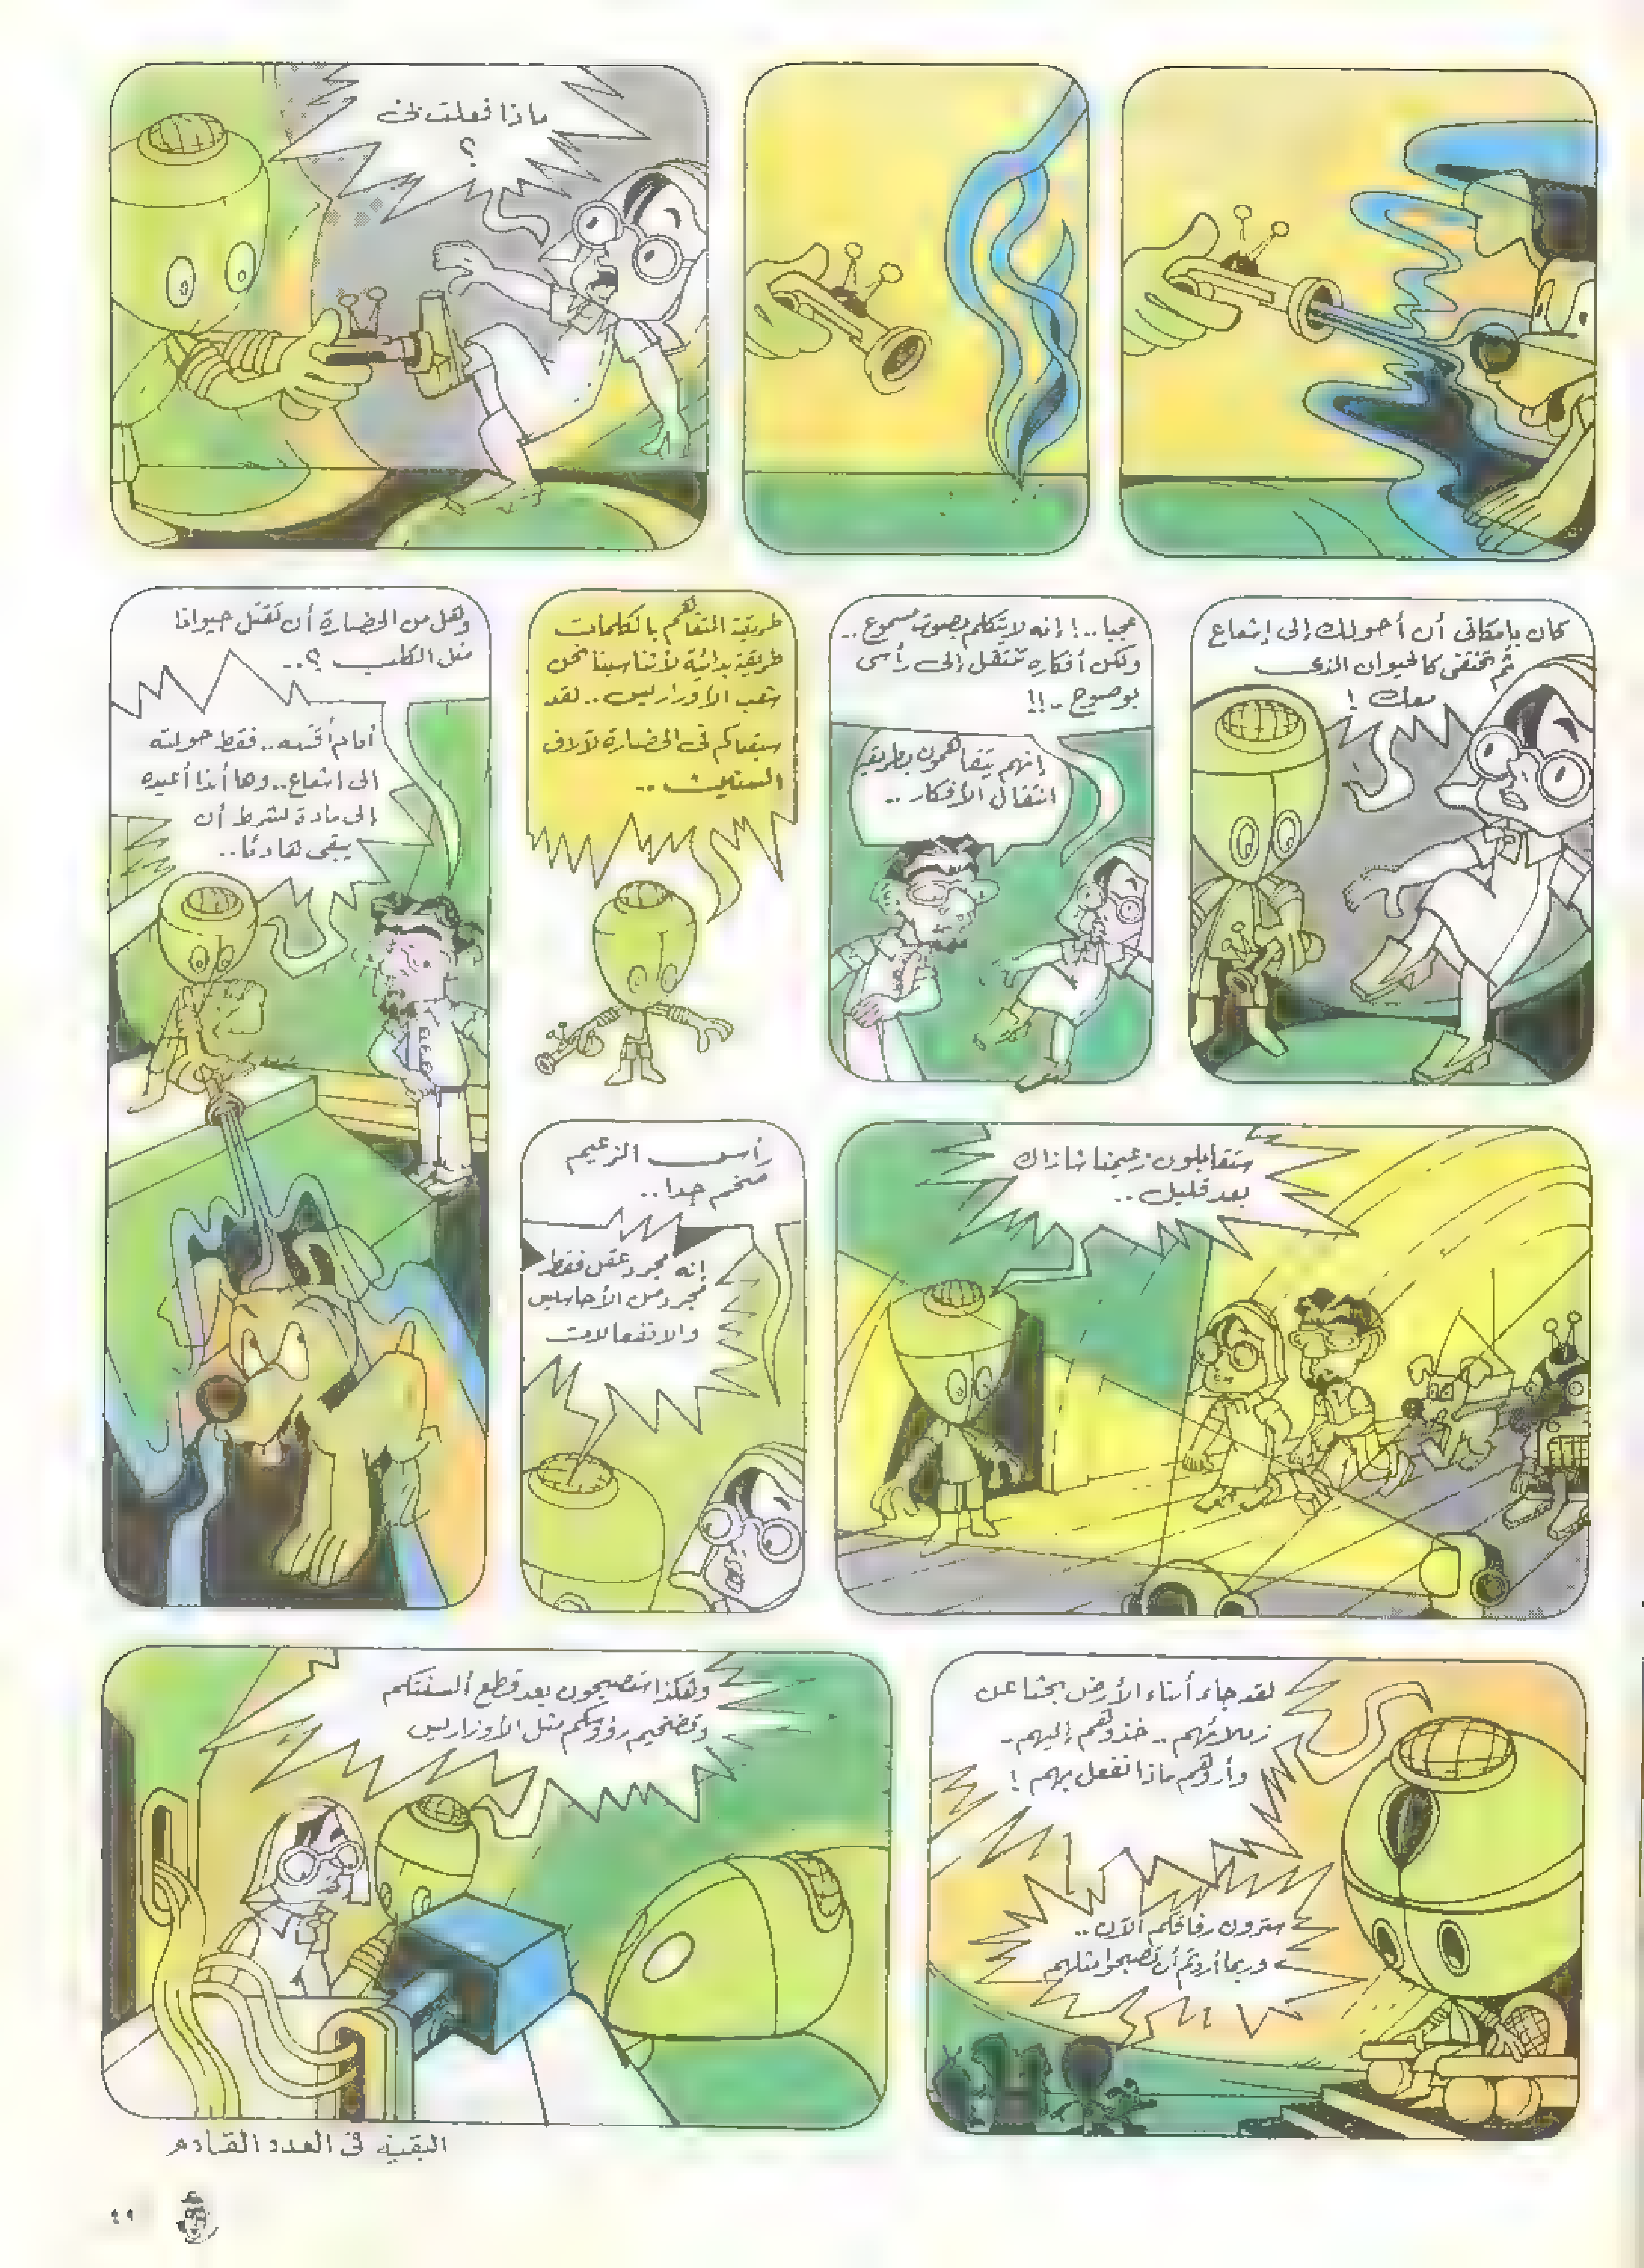 ماذا فعلت في
؟
كان بإمكاني أن أحولك إلى إشعاع
ثم تختفى كالحيوان الذى
معك !
عجبا..! إنه لا يتكلم بصوت مسموع ..
ولكن أفكاره تنتقل إلى رأسى
بوضوح ..!!
إنهم يتفاهمون بطريقة
انتقال الأفكار ..
طريقة التفاهم بالكلمات
طريقة بدائية لا تناسبنا نحن
شعب الأوزاريس .. لقد
سبقناكم فى الحضارة لآلاف
السنين ..
وهل من الحضارة أن تقتل حيوانا
مثل الكلب ؟..
أنا لم أقتله.. فقط حولته
إلى إشعاع.. وها أنذا أعيده
إلى مادة بشرط أن
يبقى هادئا..
ستقابلون زعيمنا شازاك
بعد قليل ..
رأس الزعيم
ضخم جدا..
إنه مجرد عقل فقط
مجرد من الأحاسيس
والانفعالات
لقد جاء أبناء الأرض بحثا عن
زملائهم .. خذوهم إليهم ..
وأروهم ماذا نفعل بهم !
سترون رفاقكم الآن ..
وربما أردتم أن تصبحوا مثلهم
وهكذا ستصبحون بعد قطع ألسنتكم
وتضخيم رؤوسكم مثل الأوزاريس
البقية فى العدد القادم
٤٩